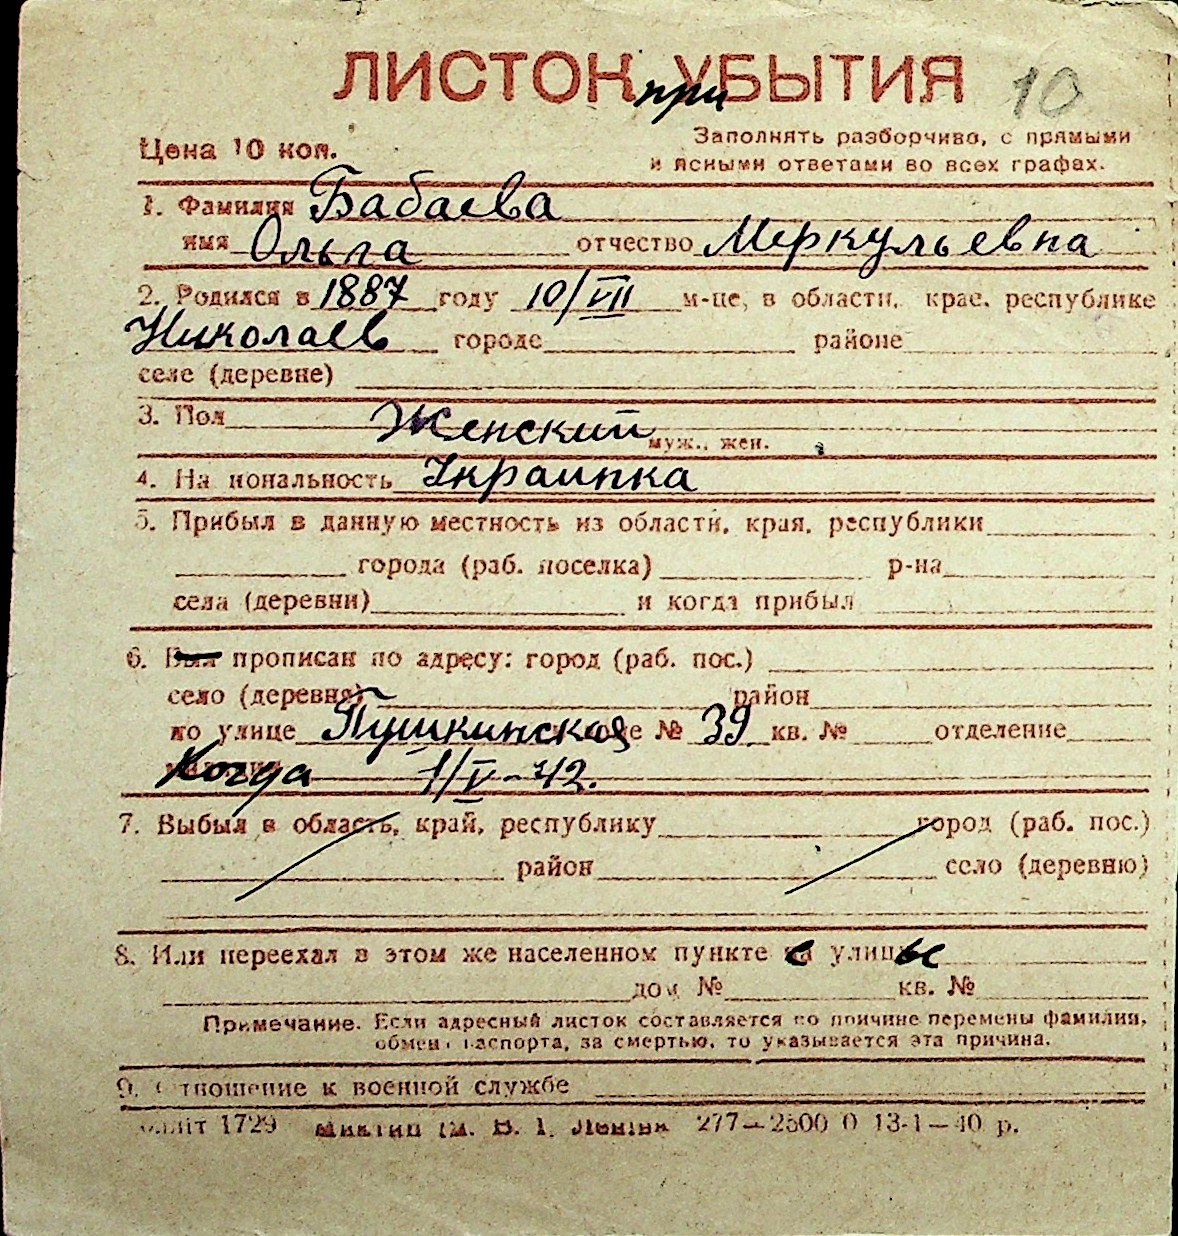 ЛИСТОК УБЫТИЯ
при
10
Цена 10 коп.
Заполнять разборчиво, с прямыми
и ясными ответами во всех графах.
1. Фамилия Бабаева
имя Ольга отчество Меркульевна
2. Родился в 1887 году 10/VII м-це, в области, крае, республике
Николаев городе районе
селе (деревне)
3. Пол Женский муж., жен.
4. На иональность Украинка
5. Прибыл в данную местность из области, края, республики
города (раб. поселка) р-на
села (деревни) и когда прибыл
6. Был прописан по адресу: город (раб. пос.)
село (деревня) район
по улице Пушкинская № 39 кв. № отделение
Когда 1/V-42.
7. Выбыл в область, край, республику город (раб. пос.)
район село (деревню)
8. Или переехал в этом же населенном пункте с улицы
дом № кв. №
Примечание. Если адресный листок составляется по причине перемены фамилии,
обмен паспорта, за смертью, то указывается эта причина.
9. Отношение к военной службе
1729 В. І. Леніна 277—2500 0 13-1—40 р.